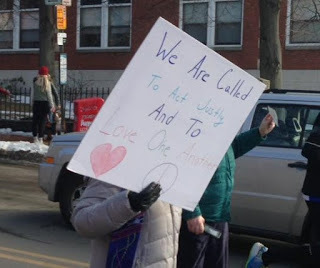 We Are Called
To Act Justly
And To
Love One Another